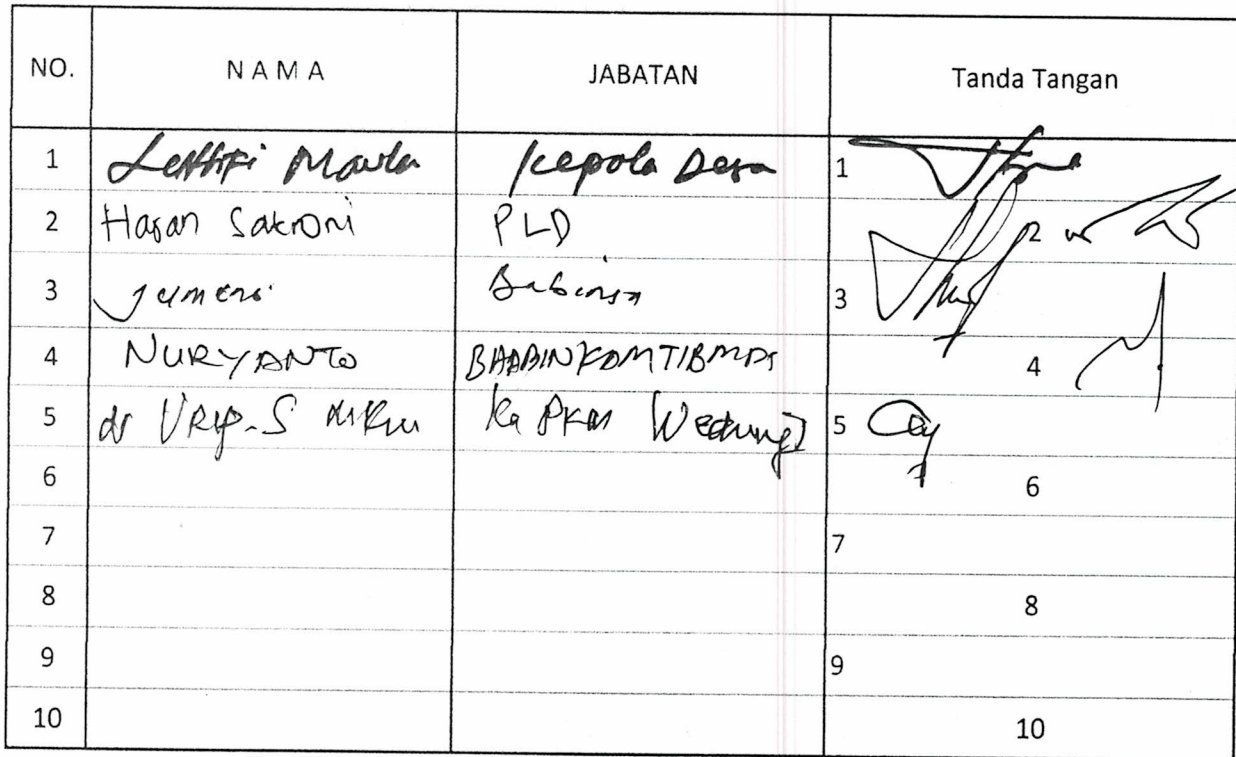 NO. N A M A JABATAN Tanda Tangan
1 Maula Kepala Desa 1
2 Hasan Sakroni PLD 2
3 Jumeni Babinsa 3
4 NURYANTO BHABINKAMTIBMAS 4
5 dr URIP-S MKM Ka PKM Wedung I 5
6 6
7 7
8 8
9 9
10 10